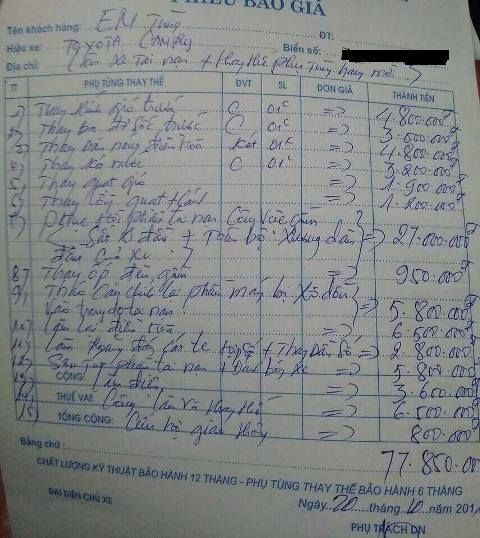 PHIẾU BÁO GIÁ
Tên khách hàng: EM Tùng ĐT:
Hiệu xe: TOYOTA CAMRY Biển số:
Địa chỉ: Làm xe Tai nạn + thay thế phụ Tùng hàng mới
TT PHỤ TÙNG THAY THẾ ĐVT SL ĐƠN GIÁ THÀNH TIỀN
1) Thay kính gió trước C 01c => 4.800.000đ
2) Thay ba đờ sốc trước C 01c => 3.600.000đ
3) Thay dàn nóng điều hòa két 01c => 4.800.000đ
4) Thay két nước C 01c => 3.200.000đ
5) Thay quạt gió => 1.900.000đ
6) Thay lồng quạt => 1.200.000đ
7) Phục hồi phần tai nạn Công vào gầm
Sắt xi đầu + Toàn bộ xương đầu => 27.000.000đ
đầu của xe
8) Thay ốp đèn gầm => 950.000đ
9) Tháo Căn chỉnh lại phần máy bị xô dồn
vào trong do tai nạn => 5.800.000đ
10) Làm lại điều hòa => 6.500.000đ
11) => 2.800.000đ
12) Sơn phần tai nạn + xe => 5.800.000đ
CỘNG: Làm điện => 3.600.000đ
14) THUẾ VAT Công làm và thay thế => 6.500.000đ
15) TỔNG CỘNG: Cứu hộ giao thông => 800.000đ
Bằng chữ: 77.850.000
CHẤT LƯỢNG KỸ THUẬT BẢO HÀNH 12 THÁNG - PHỤ TÙNG THAY THẾ BẢO HÀNH 6 THÁNG
Ngày 20 tháng 10 năm 201
ĐẠI DIỆN CHỦ XE PHỤ TRÁCH DN